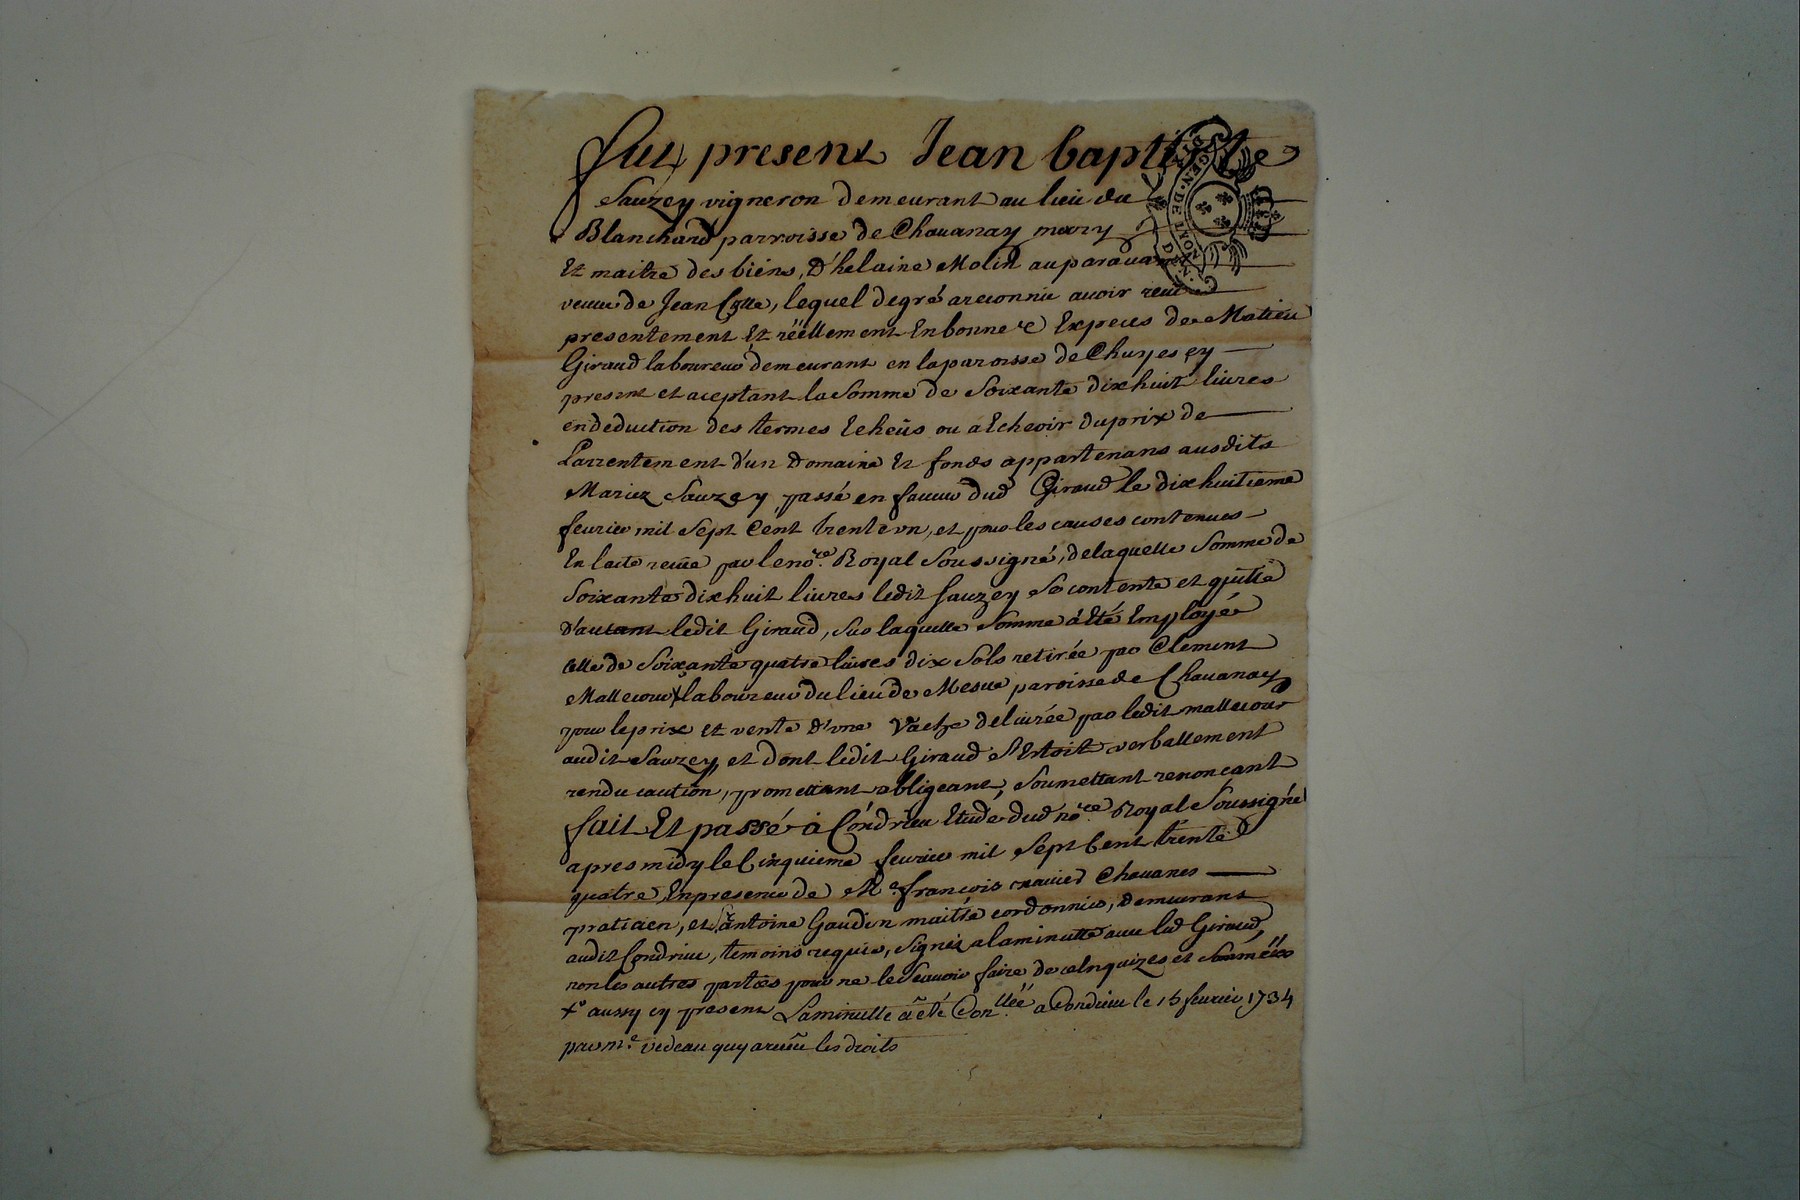 fut present Jean baptiste
Sauzey vigneron demeurant au lieu du
Blanchard parroisse de Chauanay mary
Et maitre des biens, d'helaine Molin auparauant
veuue de Jean Cotte, lequel de gré a reconnu auoir receu
presentement Et rëellement En bonnes Expeces de Matieu
Giraud laboureur demeurant en la paroisse de Chuyes cy
present et aceptant la Somme de Soixante dixhuit liures
en deduction des termes Echeüs ou a Echeoir du prix de
Larrentement d'un Domaine Et fonds appartenans ausdits
Mariez Sauzey passé en faueur dud Giraud le dixhuitieme
feurier mil Sept Cent trente vn, et pour les causes contenues
En lacte receüe par le no.re Royal Soussigné, de laquelle Somme de
Soixante dixhuit liures ledit Sauzey Se contente et quitte
d'autant ledit Giraud, Sur laquelle Somme a Eté Employée
celle de Soixante quatre liures dix Sols retirée par Clement
Mallecour laboureur du lieu de Mesue paroisse de Chauanay
pour le prix et vente d'vne Vache deliurée par ledit mallecour
audit Sauzey, et dont ledit Giraud S'Estoit verballement
rendu caution, promettant obligeant, Soumettant renoncant
fait Et passé à Condrieu Etude dud no.re Royal Soussigné
apres midy le Cinquieme feurier mil Sept Cent trente
quatre En presence de Me. francois xauier Chauanes
praticien, et Sr. antoine Gaudin maitre cordonnier, demeurants
audit Condrieu, temoins requis, Signés a la minutte auec led Giraud,
non les autres parties pour ne le Scauoir faire de ce Enquizes et Sommées
aussy cy present La minutte a eté Con.llée a Condrieu le 15 feurier 1734
par m.e vedeau quy a receu les droits
GEN. DE LYON